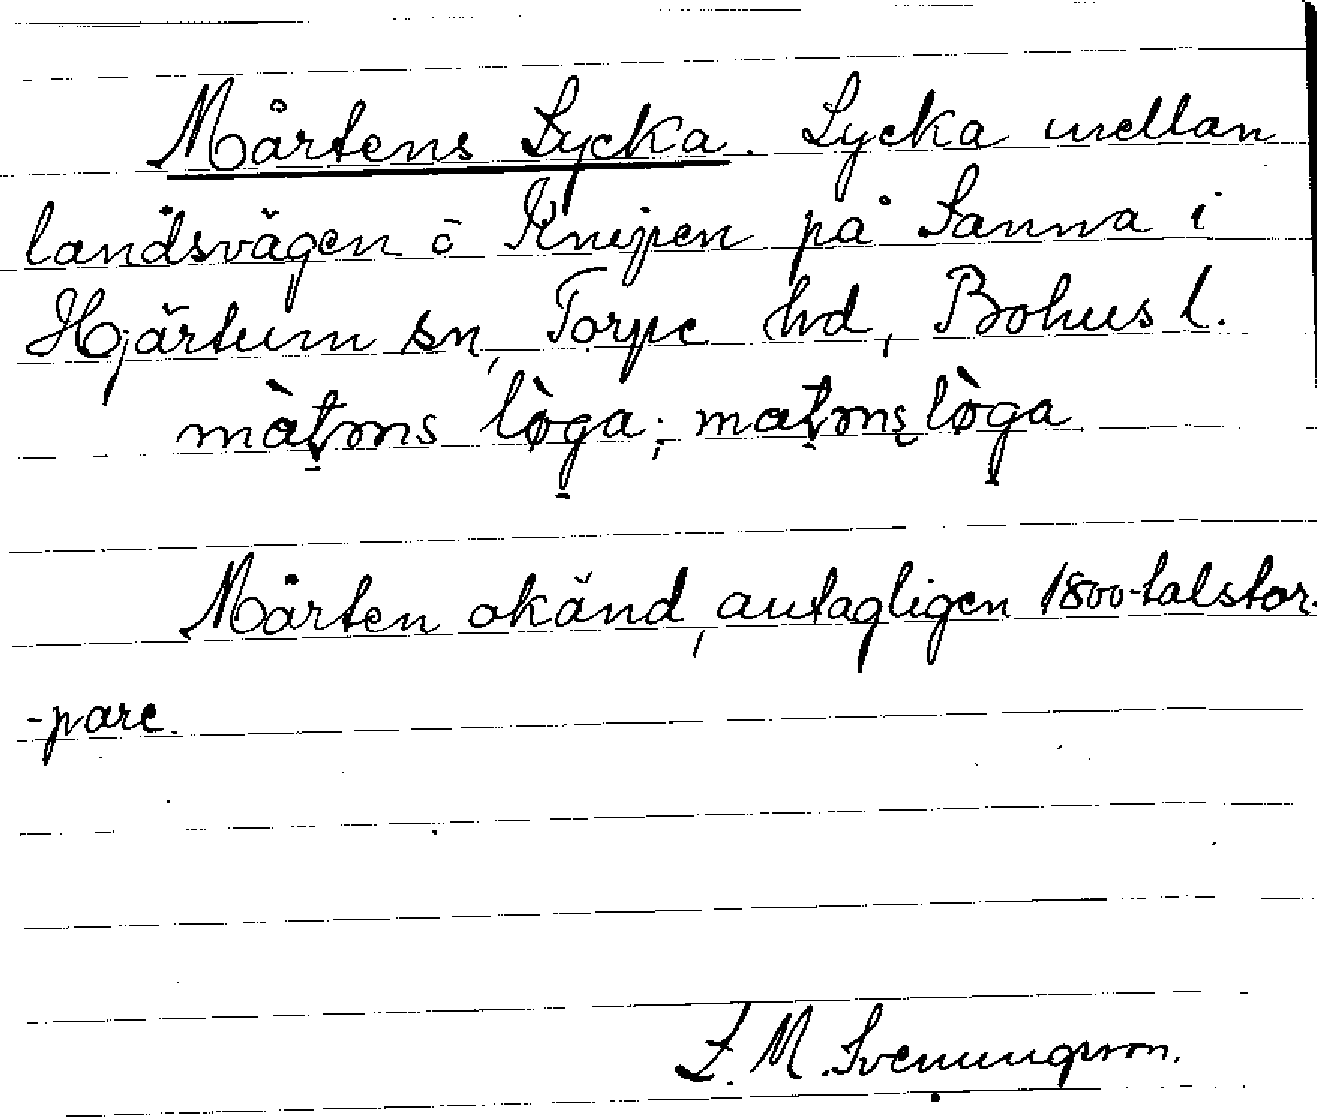 Mårtens Lycka. Lycka mellan
landsvägen ō Knipen på Sanna i
Hjärtum sn, Torpe hd, Bohus l.
Mårten okänd, antagligen 1800-talstor-
-pare.
M. Svenungsson.